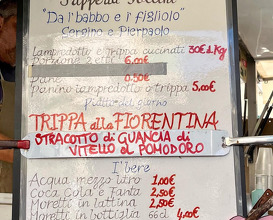 "Da l'babbo e i figliolo"
Sergino e Pierpaolo
Lampredotto e trippa cucinati 30€ Kg
Porzione 2 etti 6,00€
Pane 0.50€
Panino lampredotto o trippa 5,00€
Piatti del giorno
TRIPPA alla FIORENTINA
STRACOTTO di GUANCIA di
VITELLO al POMODORO
I' bere
Acqua mezzo litro 1,00€
Coca Cola e Fanta 2,50€
Moretti in lattina 2,50€
Moretti in bottiglia 66cl 4,00€